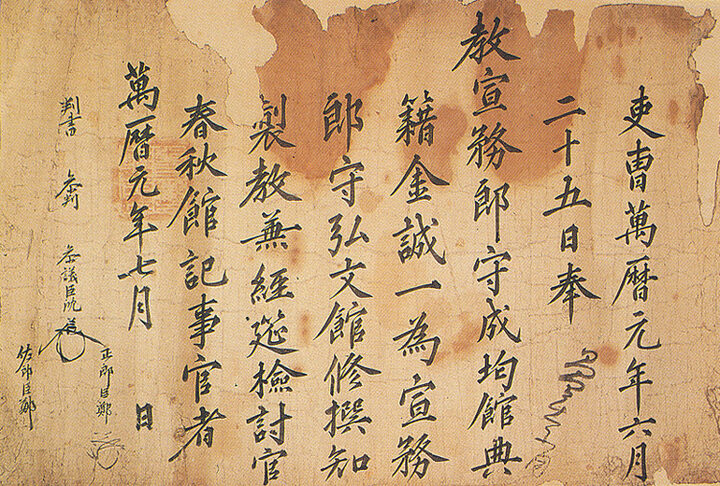 吏曹萬曆元年六月
二十五日奉
教宣務郎守成均館典
籍金誠一為宣務
郎守弘文館修撰知
製教兼經筵檢討官
春秋館記事官者
萬曆元年七月 日
判書 參判 參議臣
正郎臣鄭
佐郎臣鄭